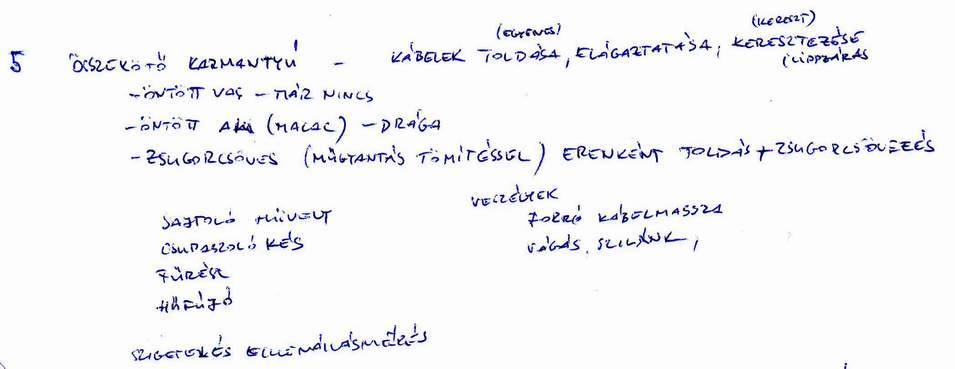 (EGYENES) (KERESZT)
5 ÖSSZEKÖTŐ KARMANTYÚ - KÁBELEK TOLDÁSA, ELÁGAZTATÁSA, KERESZTEZÉSE
(CIPPZÁRAS
- ÖNTÖTT VAS - MÁR NINCS
- ÖNTÖTT (MALAC) - DRÁGA
- ZSUGORCSÖVES (MŰGYANTÁS TÖMÍTÉSSEL) ERENKÉNT TOLDÁS + ZSUGORCSÖVEZÉS
VESZÉLYEK
SAJTOLÓ MŰVELT FORRÓ KÁBELMASSZA
CSUPASZOLÓ KÉS VÁGÁS, SZILÁNK,
FŰRÉSZ
HŐFÚJÓ
SZIGETELÉS ELLENÁLLÁSMÉRÉS